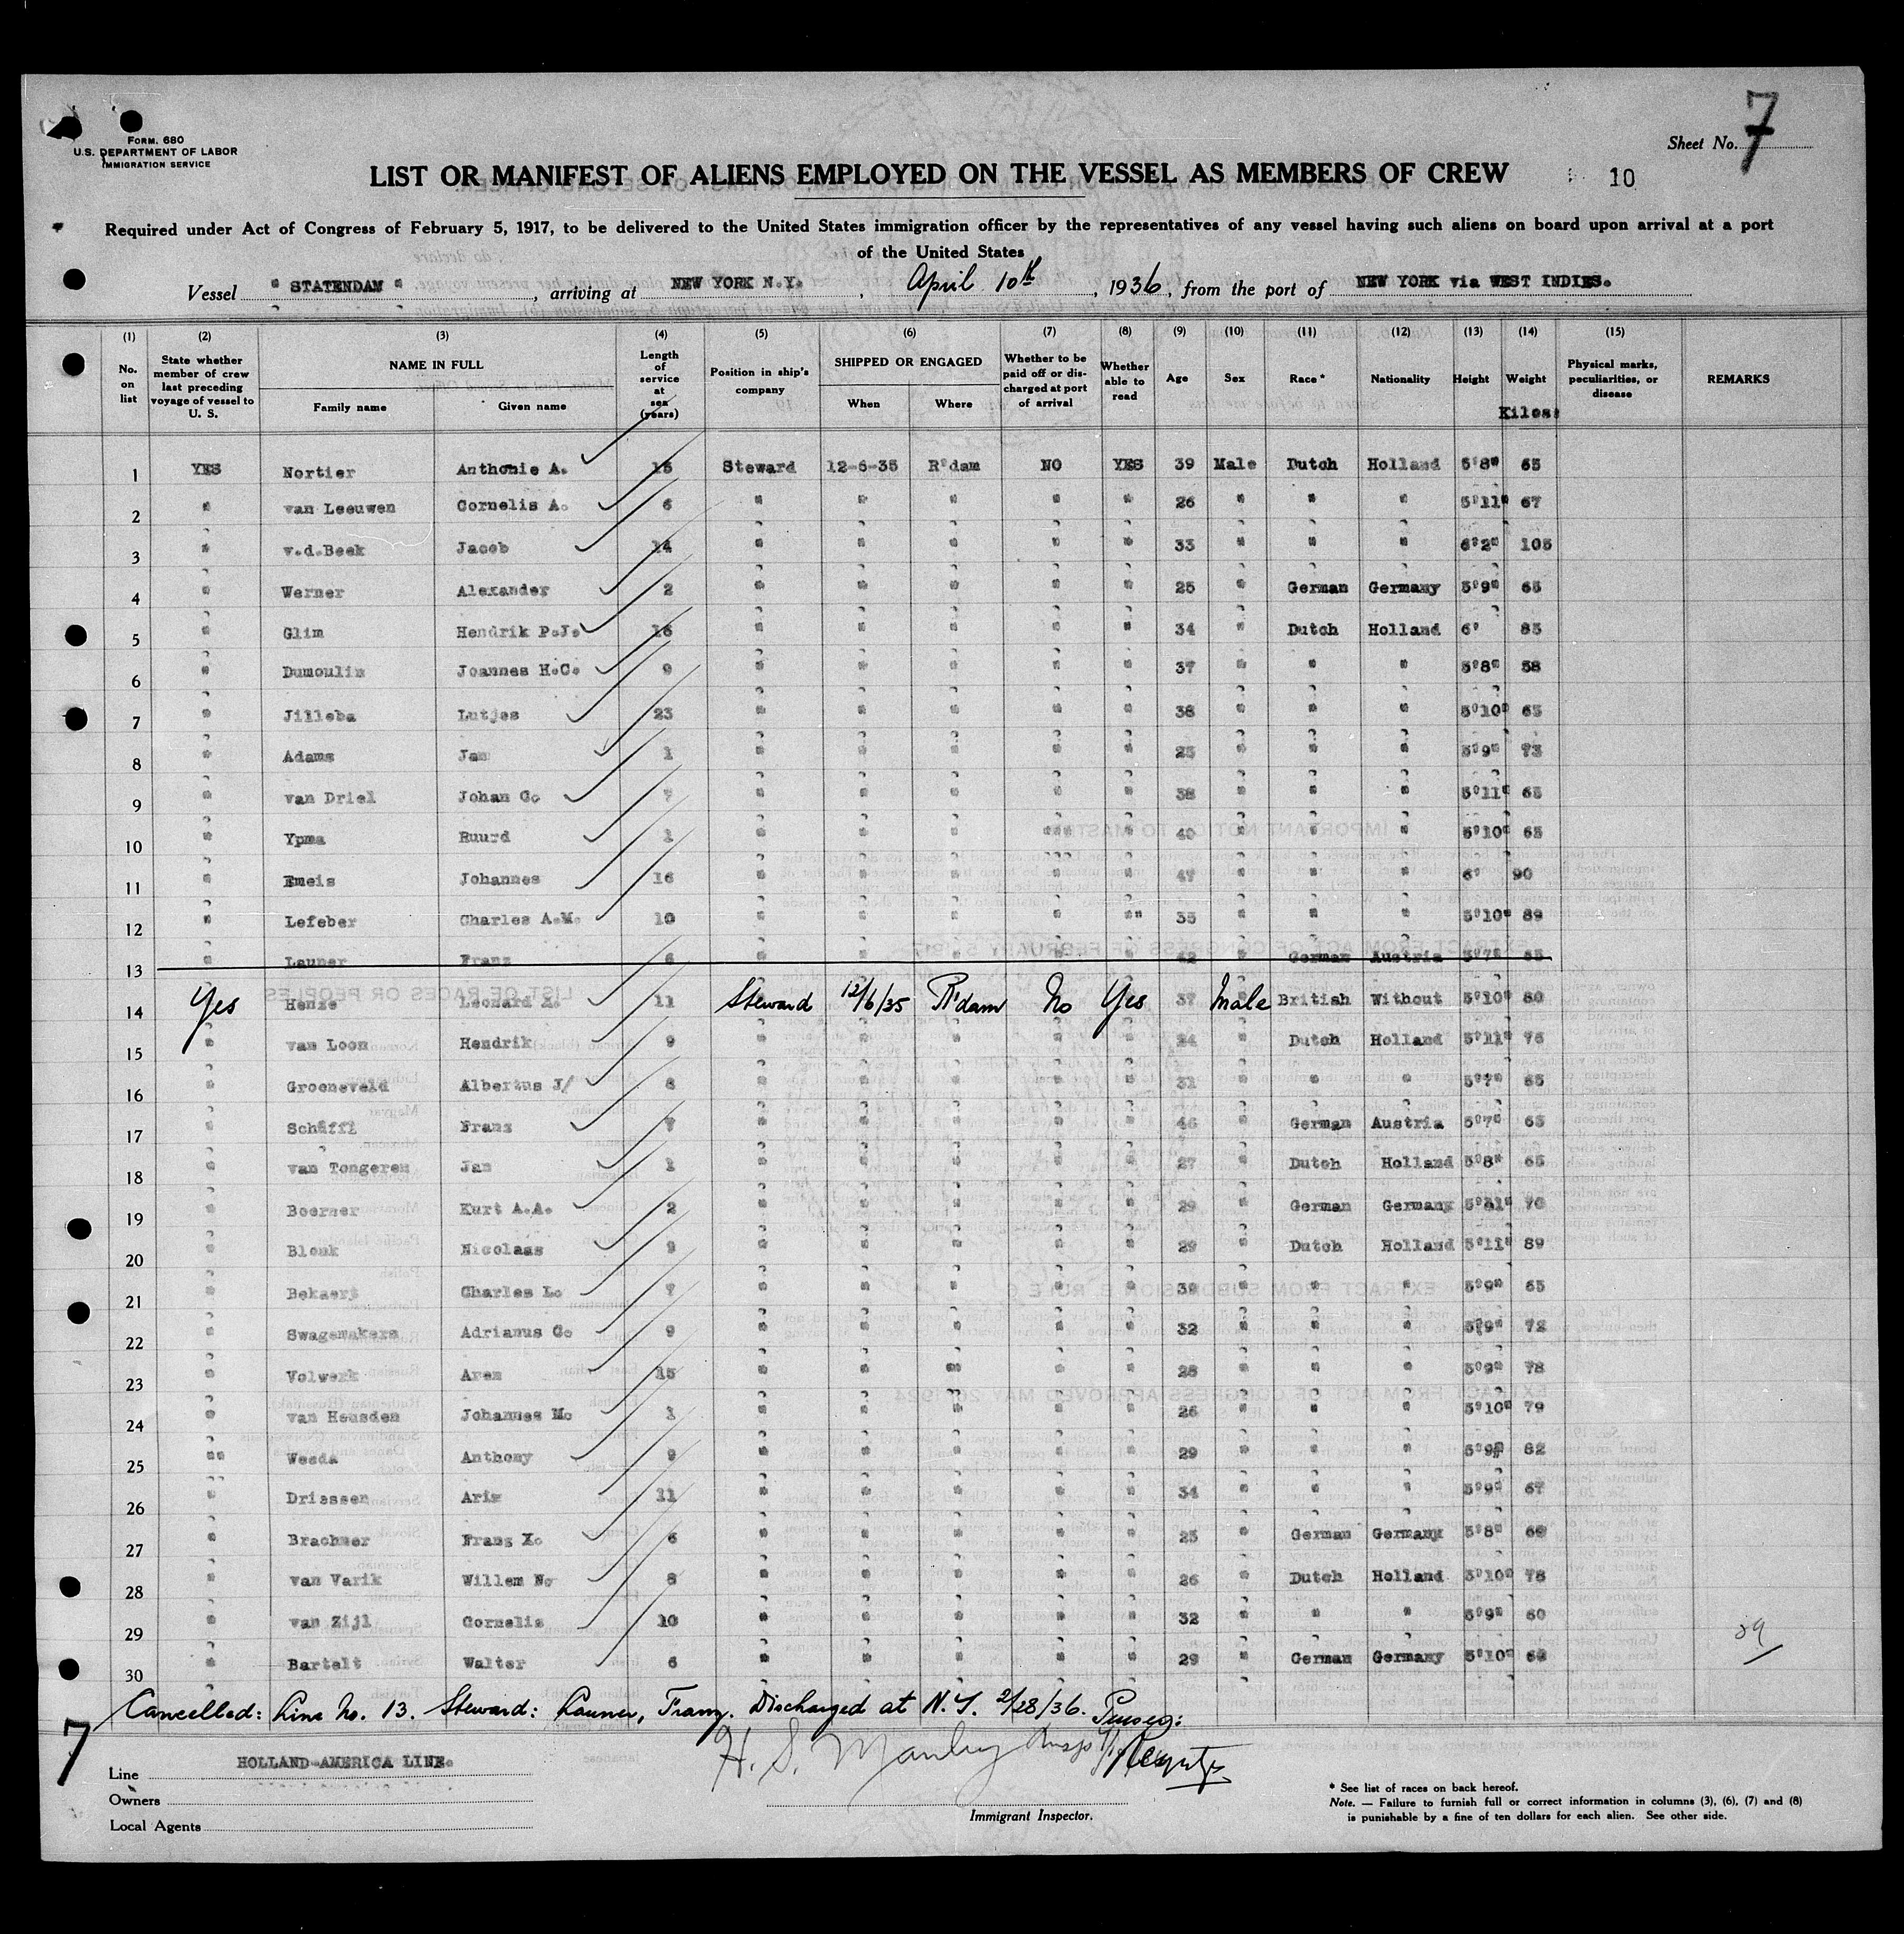 FORM. 680
U.S. DEPARTMENT OF LABOR
IMMIGRATION SERVICE
Sheet No. 7
LIST OR MANIFEST OF ALIENS EMPLOYED ON THE VESSEL AS MEMBERS OF CREW
10
Required under Act of Congress of February 5, 1917, to be delivered to the United States immigration officer by the representatives of any vessel having such aliens on board upon arrival at a port
of the United States
Vessel " STATENDAM ", arriving at NEW YORK N.Y., April 10th, 1936, from the port of NEW YORK via WEST INDIES.
(1) (2) (3) (4) (5) (6) (7) (8) (9) (10) (11) (12) (13) (14) (15)
No. on list
State whether member of crew last preceding voyage of vessel to U. S.
NAME IN FULL
Family name
Given name
Length of service at sea (years)
Position in ship's company
SHIPPED OR ENGAGED
When
Where
Whether to be paid off or discharged at port of arrival
Whether able to read
Age
Sex
Race *
Nationality
Height
Weight
Kilos:
Physical marks, peculiarities, or disease
REMARKS
1 YES Nortier Anthonie A. 15 Steward 12-6-35 R'dam NO YES 39 Male Dutch Holland 5'8" 65
2 " van Leeuwen Cornelis A. 6 " " " " " 26 " " " 5'11" 67
3 " v.d.Beek Jacob 14 " " " " " 33 " " " 6'2" 105
4 " Werner Alexander 2 " " " " " 25 " German Germany 5'9" 65
5 " Glim Hendrik P.J. 16 " " " " " 34 " Dutch Holland 6' 83
6 " Dumoulin Joannes H.C. 9 " " " " " 37 " " " 5'8" 58
7 " Jilleba Lutjes 23 " " " " " 38 " " " 5'10" 65
8 " Adams Jan 1 " " " " " 25 " " " 5'9" 73
9 " van Driel Johan C. 7 " " " " " 38 " " " 5'11" 65
10 " Ypma Ruurd 1 " " " " " 40 " " " 5'10" 65
11 " Emeis Johannes 16 " " " " " 47 " " " 6' 90
12 " Lefeber Charles A.M. 10 " " " " "" 35 " " " 5'10" 89
13 " Launer Franz 6 " " " " " 42 " German Austria 5'7" 65
14 Yes Henze Leonard 11 Steward 12/6/35 R'dam No Yes 37 Male British Without 5'10" 80
15 " van Loon Hendrik 9 " " " " " 24 " Dutch Holland 5'11" 76
16 " Groeneveld Albertus J/ 8 " " " " " 31 " " " 5'7" 65
17 " Schäffl Franz 7 " " " " " 46 " German Austria 5'7" 65
18 " van Tongeren Jan 1 " " " " " 27 " Dutch Holland 5'8" 65
19 " Boerner Kurt A.A. 2 " " " " " 29 " German Germany 5'11" 76
20 " Blonk Nicolaas 9 " " " " " 29 " Dutch Holland 5'11" 89
21 " Bekaert Charles L. 7 " " " " " 39 " " " 5'9" 65
22 " Swagemakers Adrianus C. 9 " " " " " 32 " " " 5'9" 72
23 " Volwerk Aren 15 " " " " " 28 " " " 5'9" 78
24 " van Heusden Johannes M. 1 " " " " " 26 " " " 5'10" 79
25 "" Wesda Anthony 9 " " " " " 29 " " " 5'9" 82
26 " Driessen Arie 11 " " " " " 34 " " " 5'9" 67
27 " Brachner Franz X. 6 " " " " " 25 " German Germany 5'8" 66
28 " van Varik Willem N. 8 " " " " " 26 " Dutch Holland 5'10" 78
29 " van Zijl Cornelis 10 " " " " " 32 " " " 5'9" 60
30 " Bartelt Walter 6 " " " " " 29 " German Germany 5'10"
Cancelled: Line No. 13. Steward: Launer, Franz. Discharged at N.Y. 2/28/36. Purser:
7
H. S. Manley
Line HOLLAND-AMERICA LINE.
Owners
Local Agents
Immigrant Inspector.
* See list of races on back hereof.
Note. — Failure to furnish full or correct information in columns (3), (6), (7) and (8)
is punishable by a fine of ten dollars for each alien. See other side.